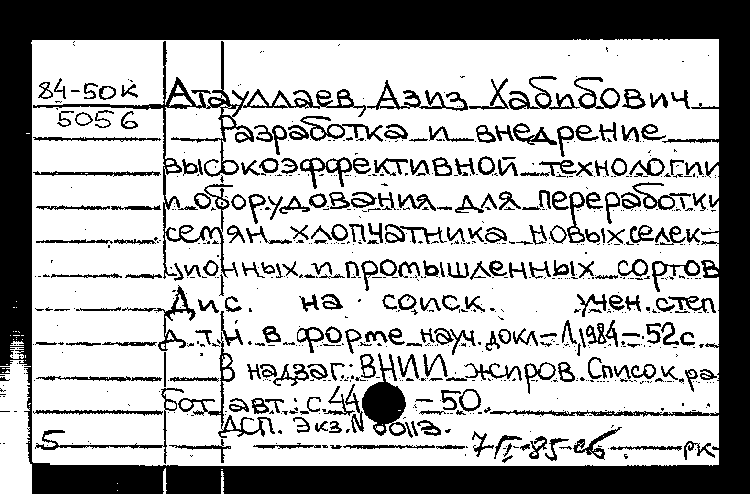 84-50к Атауллаев, Азиз Хабибович.
5056 Разработка и внедрение
высокоэффективной технологии
и оборудования для переработки
семян хлопчатника новых селек-
ционных и промышленных сортов
Дис. на соиск. учен. степ
д. т. н. в форме науч. докл. - Л, 1984 - 52 с
В надзаг: ВНИИ жиров. Список ра
бот авт.: с. 44 - 50.
ДСП. Экз. N
5 рк-